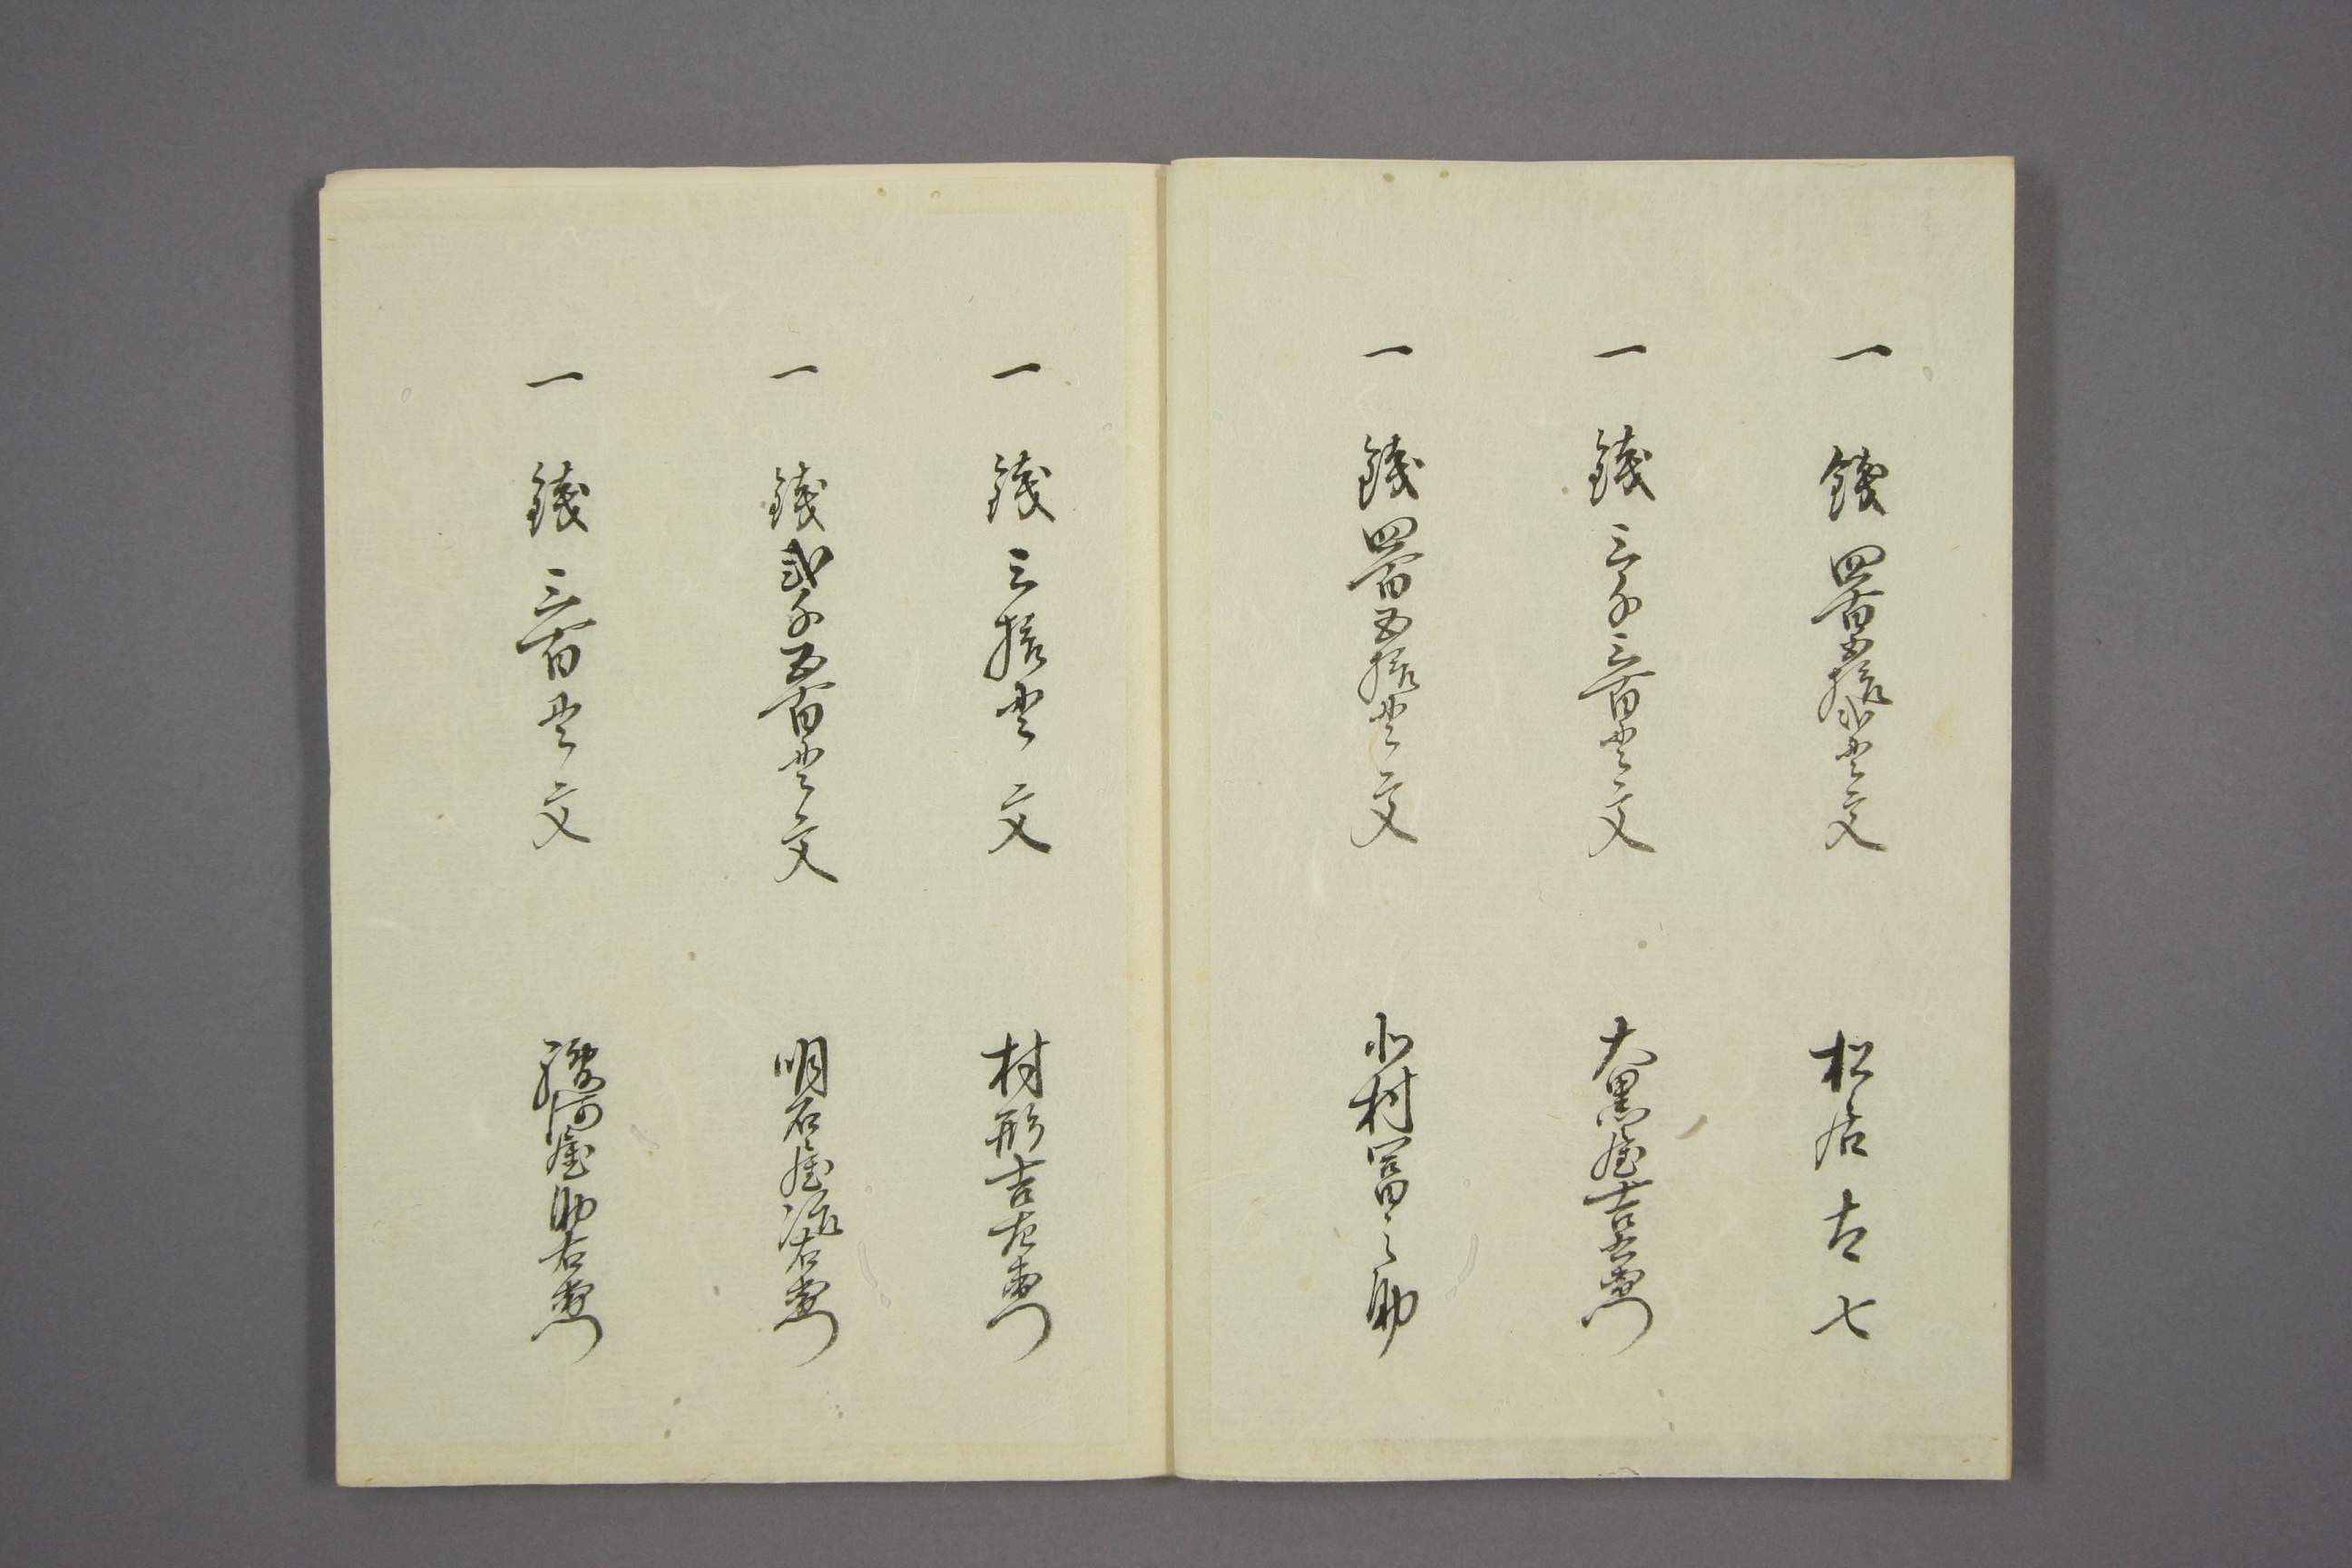 一 銭 四百五拾弐貫文 松居古七
一 銭 三千三百貫文 大黒屋吉右衛門
一 銭四百五拾貫文 北村冨之助
一 銭 三拾貫文 村形吉左衛門
一 銭弐千五百貫文 明石屋治右衛門
一 銭 三百貫文 播河屋助右衛門